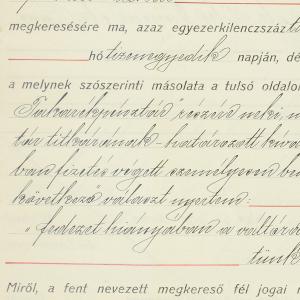 megkeresésére ma, azaz egyezerkilenczszáz
hó tizenegyedik napján, dé
a melynek szószerinti másolata a tulsó oldalon
Takarékpénztár" részéről neki, m
tár titkárának - határozott kivá
ban fizetés végett személyesen be
következő választ nyertem:
" fedezet hiányában a váltót
tünk
Miről, a fent nevezett megkereső fél jogai